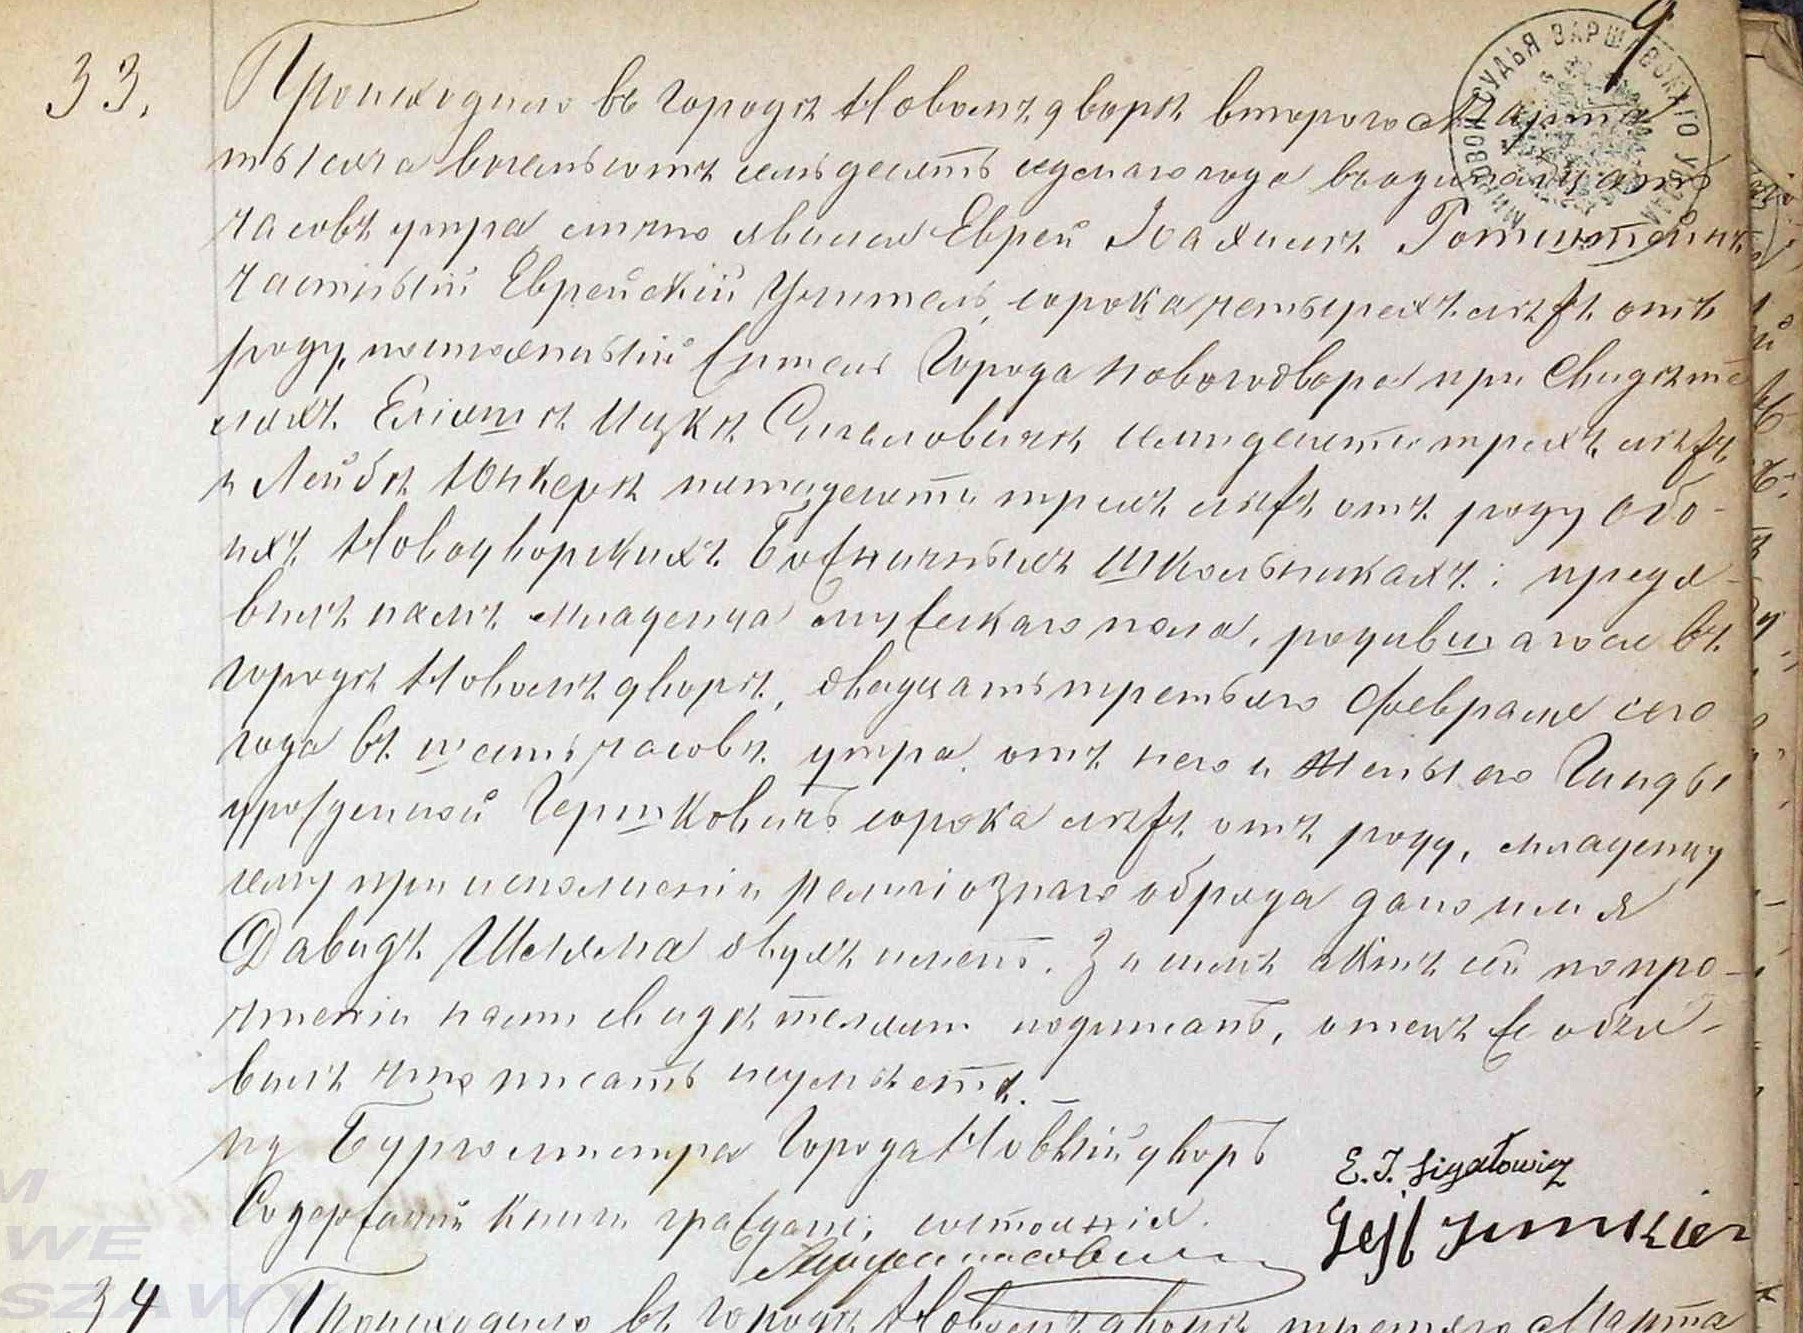 9
33. Происходило въ городѣ Новомъ дворѣ втораго Марта
тысяча восемьсотъ семьдесятъ седьмаго года въ одинадцать
часовъ утра лично явился Еврей Іоахимъ Ротштейнъ
частный Еврейскій Учитель, сорока четырехъ лѣтъ отъ
роду, постоянный житель Города Новогодвора при Свидѣте
ляхъ Еліяшѣ Ицкѣ Сигаловичѣ семидесяти трехъ лѣтъ
и Лейбѣ Юнкерѣ пятидесяти трехъ лѣтъ отъ роду обо-
ихъ Новодворскихъ Божничныхъ Школьникахъ: предъя-
вилъ намъ младенца мужескаго пола, родившагося въ
городѣ Новомъ дворѣ, двадцать третьяго Февраля сего
года въ шесть часовъ утра, отъ него и Жены его Гинды
урожденной Гершковичъ сорока лѣтъ отъ роду, младенцу
сему при исполненіи религіознаго обряда дано имя
Давидъ Шеляма двухъ именъ. За симъ актъ сей по про-
чтеніи нами свидѣтелями подписанъ, отецъ же объя-
вилъ что писать неумѣетъ. –
пд Бургомистра Города Новыйдворъ
Содержащій книги граждан; состоянія.
E. I. Sigałowicz
Lejb Junkier
34 Происходило въ городѣ Новомъ дворѣ третьяго Марта
МИРОВОЙ СУДЬЯ ВАРШАВСКАГО УѢЗДА
M
WE
SZAWY